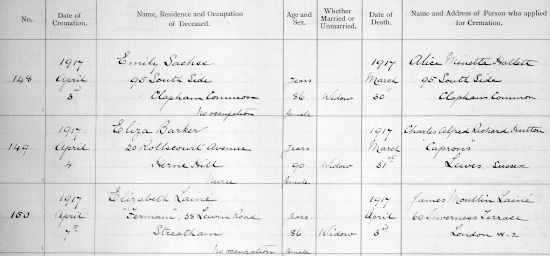 No.
Date of Cremation.
Name, Residence and Occupation of Deceased.
Age and Sex.
Whether Married or Unmarried.
Date of Death.
Name and Address of Person who applied for Cremation.
1917 Emily Sachse 1917 Alice Minetta Hallett
148 April 95 South Side years March 95 South Side
3d Clapham Common 86 Widow 30th Clapham Common
No occupation female
1917 Eliza Barker 1917 Charles Alfred Richard Hutton
149 April 20 Rollscourt Avenue years March "Caprons"
4 Herne Hill 90 Widow 31st Lewes, Sussex
Nurse female
1917 Elizabeth Laine 1917 James Moullin Lainé
150 April "Fermain", 38 Leurin Road years April 60 Inverness Terrace
7th Streatham 86 Widow 3d London W-2
No occupation female